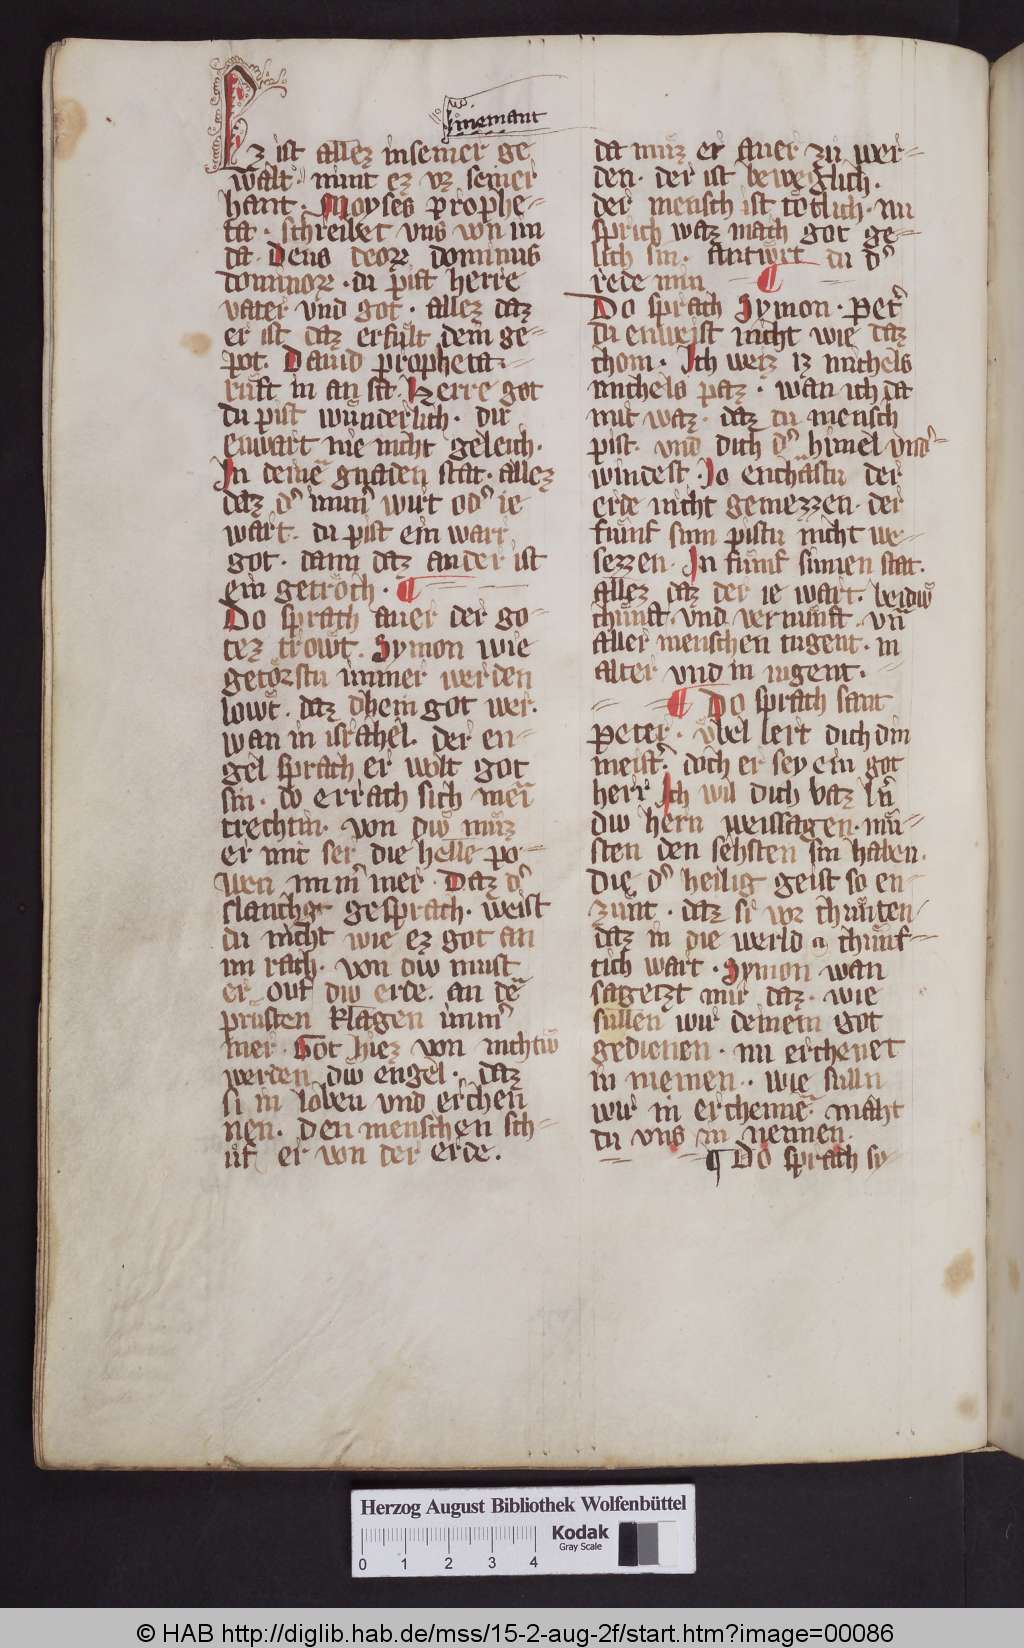 niemant
Ez ist allez in seiner ge
walt · nimt ez vz seiner
hant · Moyses prophe-
ta · schreibet vns von im
da · Deus deor dominus
dominor · du pist herre
vater vnd got · allez daz
er ist daz erfult dem ge-
pot · Dauid propheta ·
ruft in an sa · Herre got
du pist wunderlich · dir
enwart nie nicht geleich ·
In deine gnaden stat · allez
daz d' imm' wirt od' ie
wart · du pist ein warr
got · dann daz ander ist
ein getroch ·
Do sprach auer der go-
tez trowt · Symon wie
getorstu immer werden
lowt · daz dhein got wer ·
wan in israhel · der en-
gel sprach er wolt got
sin · do errach sich mei
trechtin · von diw muz
er mit ser die helle po-
wen imm' mer · Daz d'
slanch gesprach · weist
du nicht wie ez got an
im rach · von diw must
er ouf diw erde · an de
prusten klagen imm'
mer · Got hiez von nichtiw
werden diw engel · daz
si in loben vnd erchen
nen · den menschen sch-
uf er von der erde ·
da muz er auer zu wer-
den · der ist beweglich ·
der mensch ist totlich · nu
sprich waz mach got ge-
lich sin · antwrt du d'
rede min
Do sprach Symon · Pet'
du enweist nicht wie daz
chom · Ich weiz iz nichels
nichels paz · wan ich da
mit waz · daz du mensch
pist · vnd dich d' himel vnd'
windest · Jo enchastu der
erde nicht gemezzen · der
funf sinn pistu nicht we-
sezzen · In funf sinnen stat ·
allez daz der ie wart · beidiw
chunst · vnd vernunft · vn
aller menschen tugent · in
alter vnd in iugent ·
Do sprach sant
Peter · vbel lert dich din
meist' · doch er sey ein got
herr Ich wil dich baz l'n
diw hern weissagen · mu-
sten den sehsten sin haben ·
Die d' heilig geist so en-
zunt · daz si vor chunten
daz in die werld chunf-
tich wart · Symon wan
sagetzt mir daz · wie
sullen wir deinem got
gedienen · nu erchenet
in niemen · wie sulln
wir in erchenne · maht
du vns in nennen ·
Do sprach sy-
Herzog August Bibliothek Wolfenbüttel
0 1 2 3 4
Kodak
Gray Scale
© HAB http://diglib.hab.de/mss/15-2-aug-2f/start.htm?image=00086